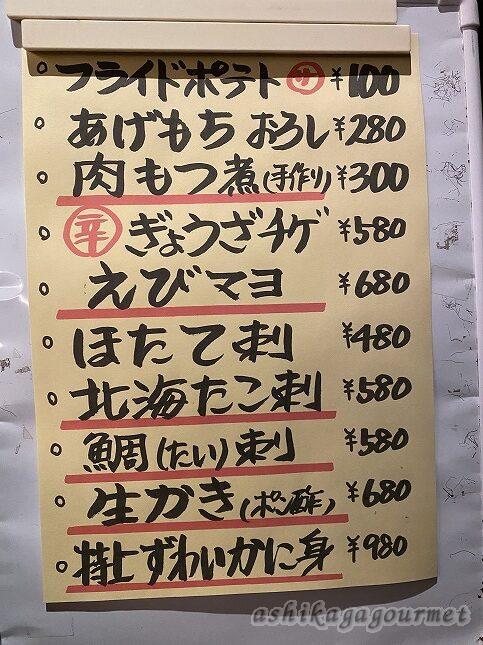 フライドポテト ㋚ ¥100
あげもち おろし ¥280
肉もつ煮(手作り) ¥300
辛 ぎょうざチゲ ¥580
えびマヨ ¥680
ほたて刺 ¥480
北海たこ刺 ¥580
鯛(たい)刺 ¥580
生がき(ポン酢) ¥680
特上ずわいかに身 ¥980
ashikagagourmet